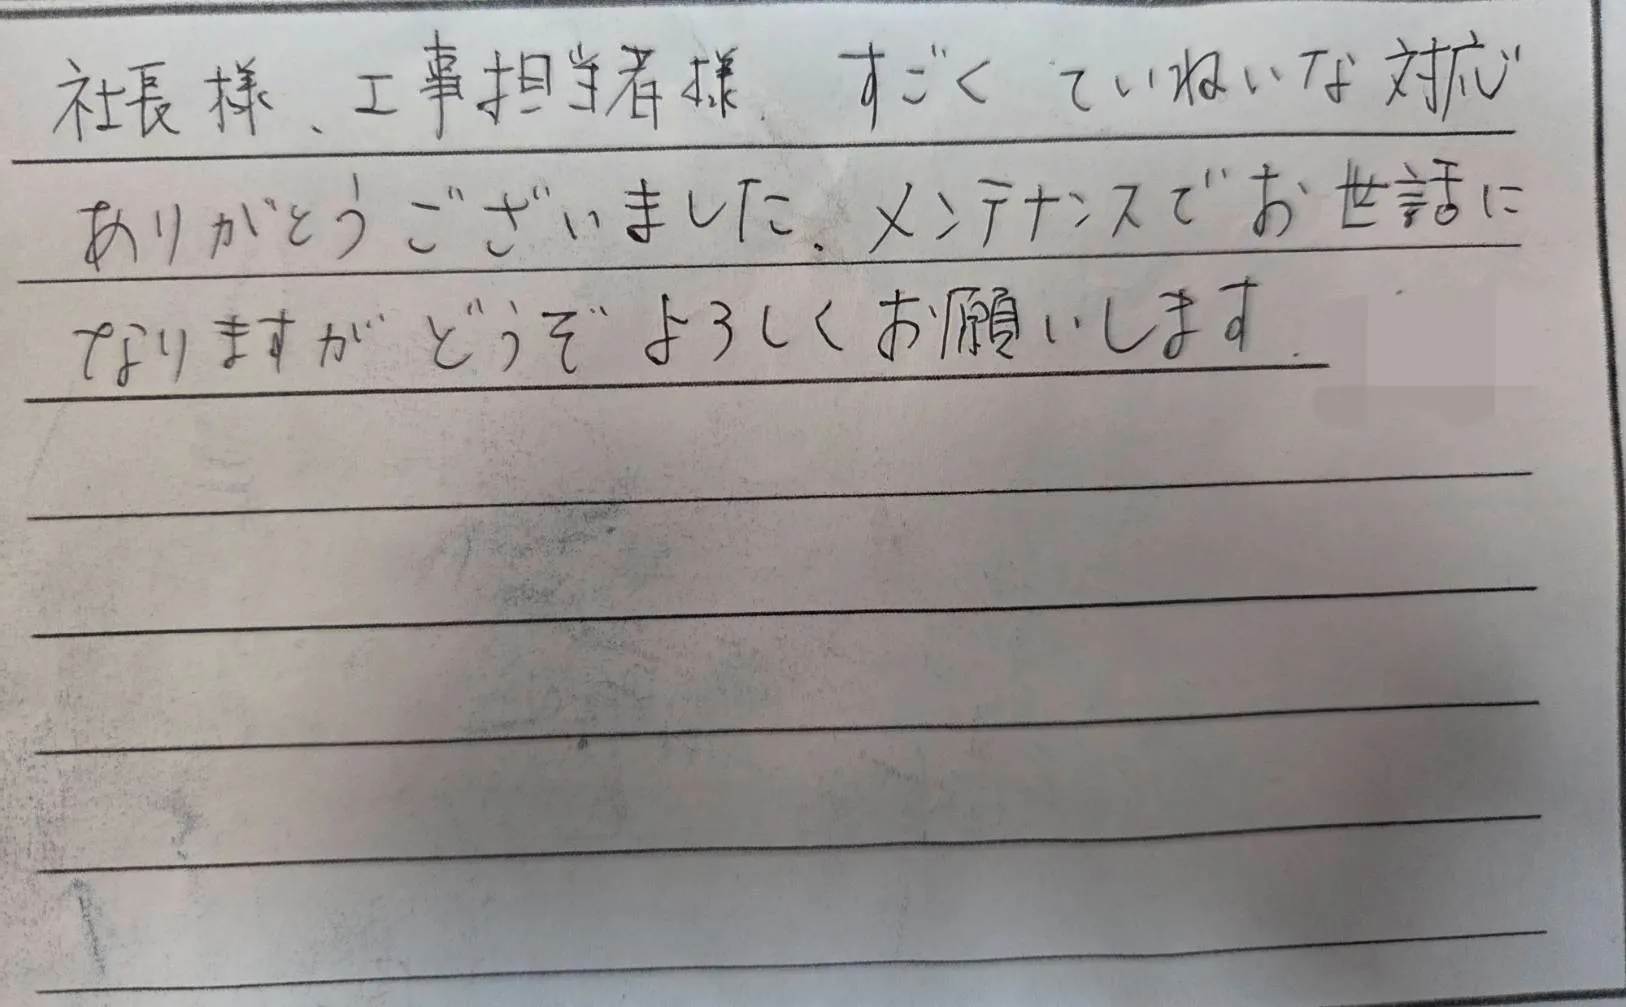 社長様、工事担当者様、すごくていねいな対応
ありがとうございました。メンテナンスでお世話に
なりますがどうぞよろしくお願いします。